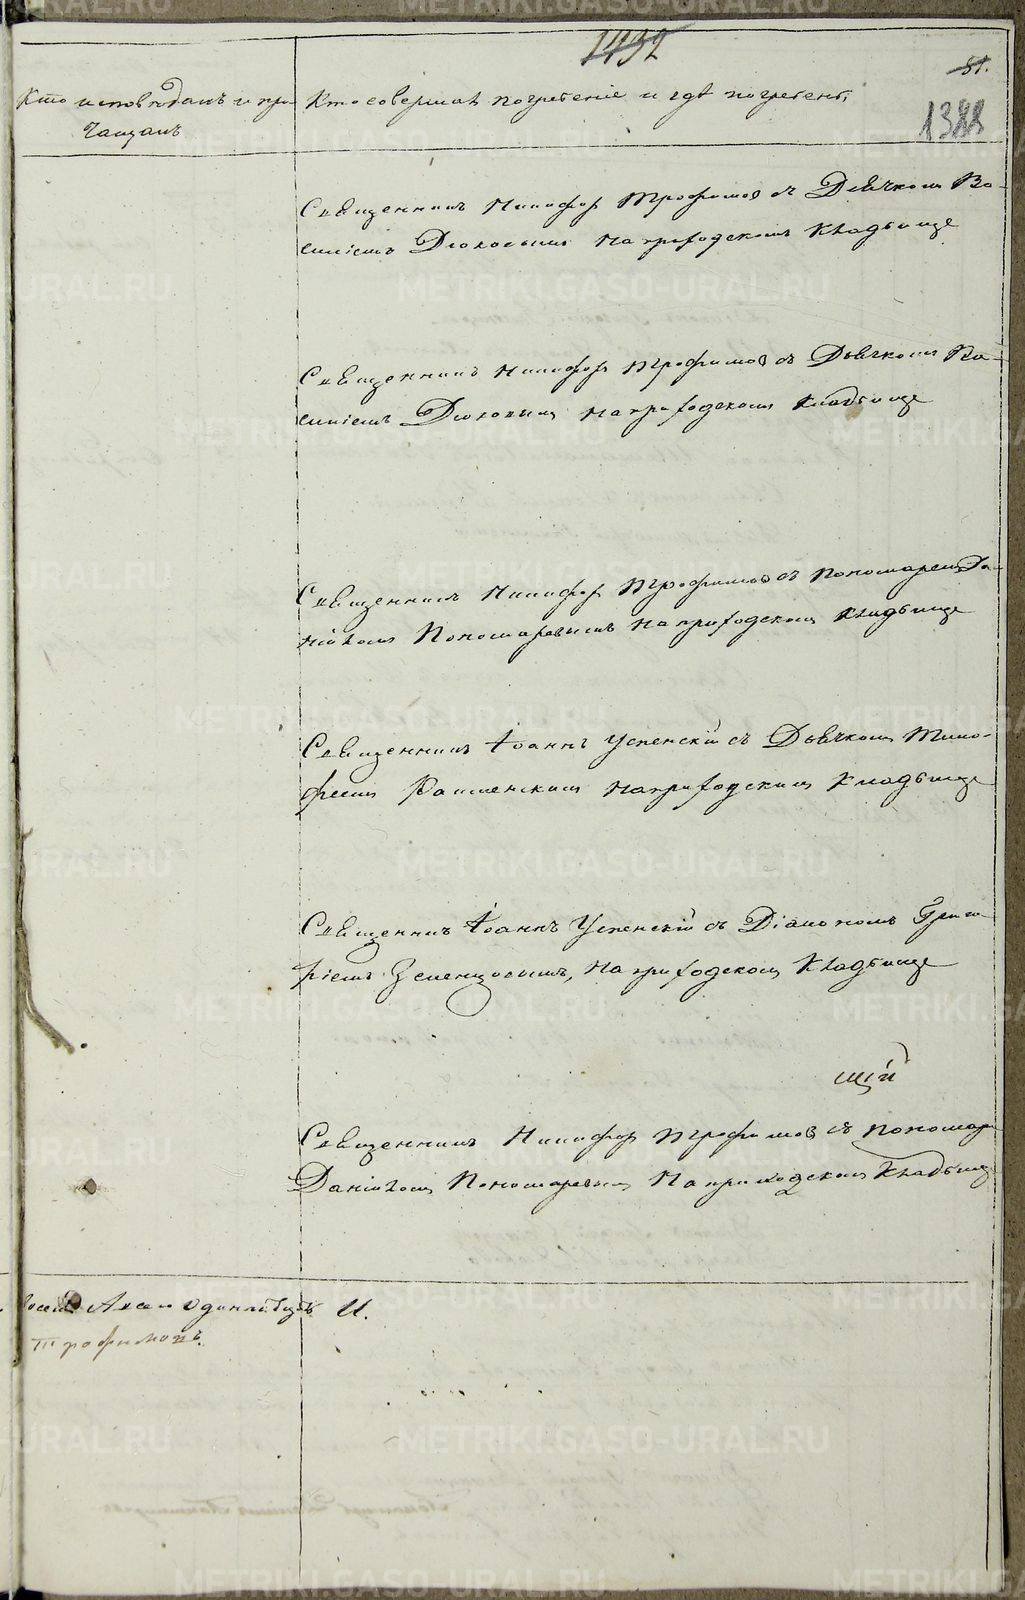 1432
51.
1388
Кто исповѣдалъ и при-
чащалъ
Кто совершалъ погребеніе и гдѣ погребены,
Священникъ Никифоръ Трофимовъ съ Дьячкомъ Ва-
силіемъ на приходскомъ кладбище
Священникъ Никифоръ Трофимовъ съ Дьячкомъ Ва-
силіемъ на приходскомъ кладбище
Священникъ Никифоръ Трофимовъ съ пономаремъ Да-
ніиломъ Пономаревымъ на приходскомъ кладбище
Священникъ Іоаннъ Успенскій съ Дьячкомъ Тимо-
феемъ на приходскомъ кладбище
Священникъ Іоаннъ Успенскій съ Діакономъ Григо-
ріемъ на приходскомъ кладбище
щій
Священникъ Никифоръ Трофимовъ съ пономар
Даніиломъ Пономаревымъ на приходскомъ кладбище
одиннатцать И.
Трофимовъ.
METRIKI.GASO-URAL.RU